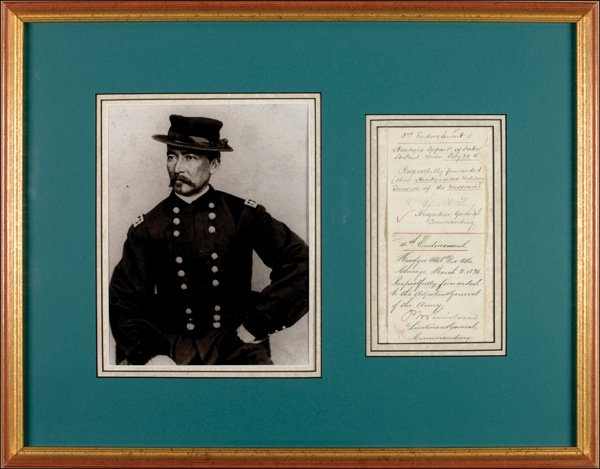 3rd Endorsement
Headqrs Depart. of Dakota
St Paul, Minn,
Respectfully forwarded
Headquarters
Division of the Missouri
Brigadier General
Commanding
4th Endorsement
Headqrs Mil. Div. Mo.
Chicago, March 2, 1876
Respectfully forwarded
to the Adjutant General
of the Army
Lieutenant General
Commanding